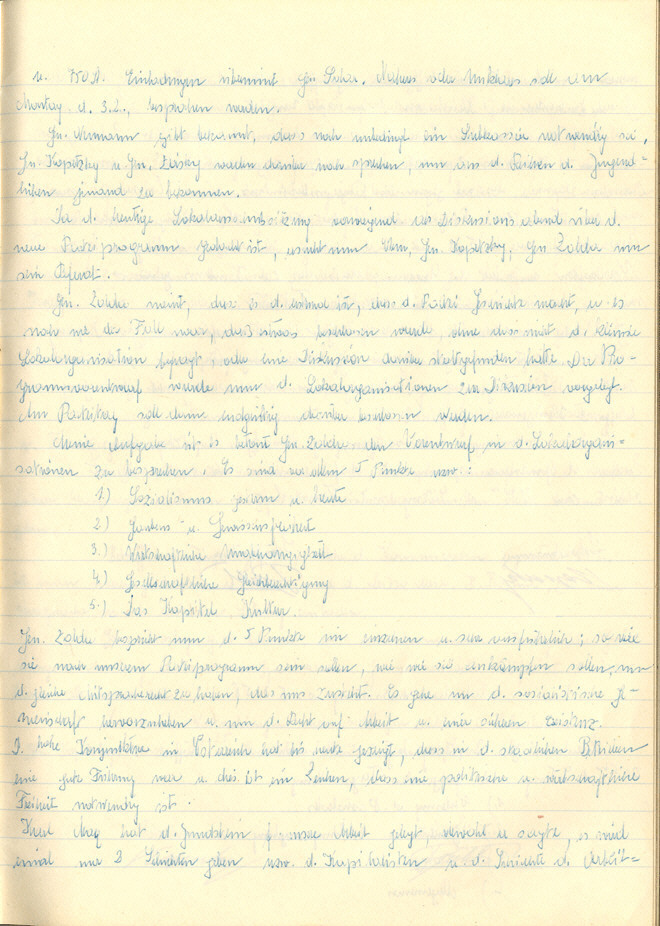 u. Einladungen übernimmt Gen. oder soll am
Montag d. 3.2., besprochen werden.
Gen. gibt bekannt, dass noch unbedingt ein notwendig sei,
Gen. Kopetzky u Gen. werden darüber noch sprechen, um aus d. Reihen d. Jugend-
lichen jemand zu bekommen.
Da d. heutige vorwiegend als Diskussionsabend über d.
neue Parteiprogramm gedacht ist, ersucht nun Gen. Kopetzky, Gen Zahlka um
sein Referat.
Gen. Zahlka meint, dass es d. erstemal ist, dass d. Partei Geschichte macht, u. es
noch nie der Fall war, daß etwas beschlossen wurde, ohne dass nicht d. kleinste
Lokalorganisation befragt u. oder eine Diskussion darüber stattgefunden hätte. Der Pro-
grammvorentwurf wurde nun d. Lokalorganisationen zur Diskussion vorgelegt.
Am Parteitag soll dann endgültig darüber beschlossen werden.
Meine Aufgabe ist es betont Gen. Zahlka, den Vorentwurf in d. Lokalorgani-
sationen zu besprechen. Es sind vor allem 5 Punkte usw.:
1.) Sozialismus gestern u. heute
2.) Glaubens- u. Gewissensfreiheit
3.) Wirtschaftliche Unabhängigkeit
4.) Gesellschaftliche Gleichberechtigung
5.) Das Kapitel Kultur.
Gen. Zahlka bespricht nun d. 5 Punkte im einzelnen u. sehr ausführlich; so wie
sie nach unserem Parteiprogramm sein sollen, wie wir sie erkämpfen sollen, um
d. gleiche Mitspracherecht zu haben, das uns zusteht. Es gehe um d. sozialistische Ge-
meinschaft hervorzuheben u. um d. Recht auf Arbeit u. einer sicheren Existenz.
D. hohe Konjunktur in Österreich hat bis heute gezeigt, dass in d. staatlichen Betrieben
eine gute Führung war u. dies ist ein Zeichen, dass eine politische u. wirtschaftliche
Freiheit notwendig ist.
Karl Marx hat d. Grundstein f. unsere Arbeit gelegt, obwohl er sagte, es wird
einmal nur 2 Schichten geben usw. d. Kapitalisten u. d. Schichte d. Arbeit-